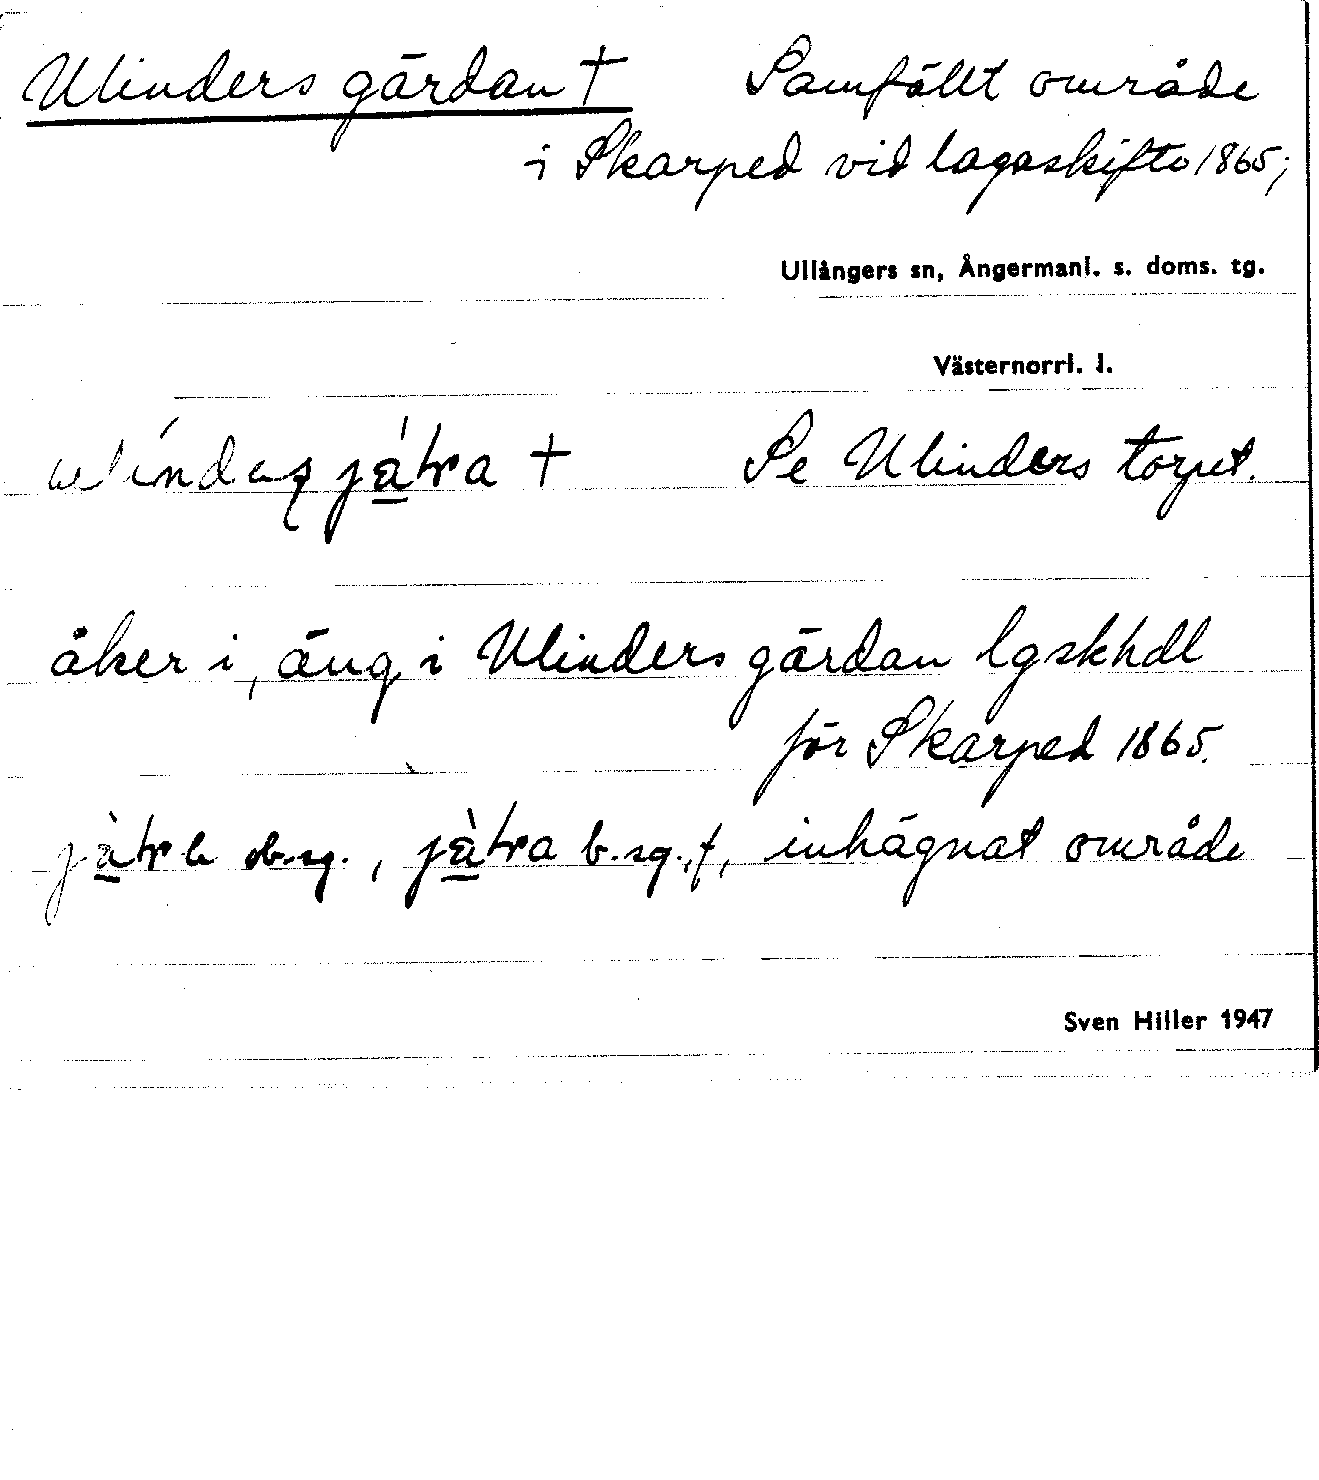 Ulinders gärdan † Samfällt område
i Skarped vid lagaskifte 1865;
Ullångers sn, Ångermanl. s. doms. tg.
Västernorrl. l.
† Se Ulinders torpet.
åker i, äng i Ulinders gärdan lgskhdl
för Skarped 1865.
ob.sg., b.sg.f, inhägnat område
Sven Hiller 1947